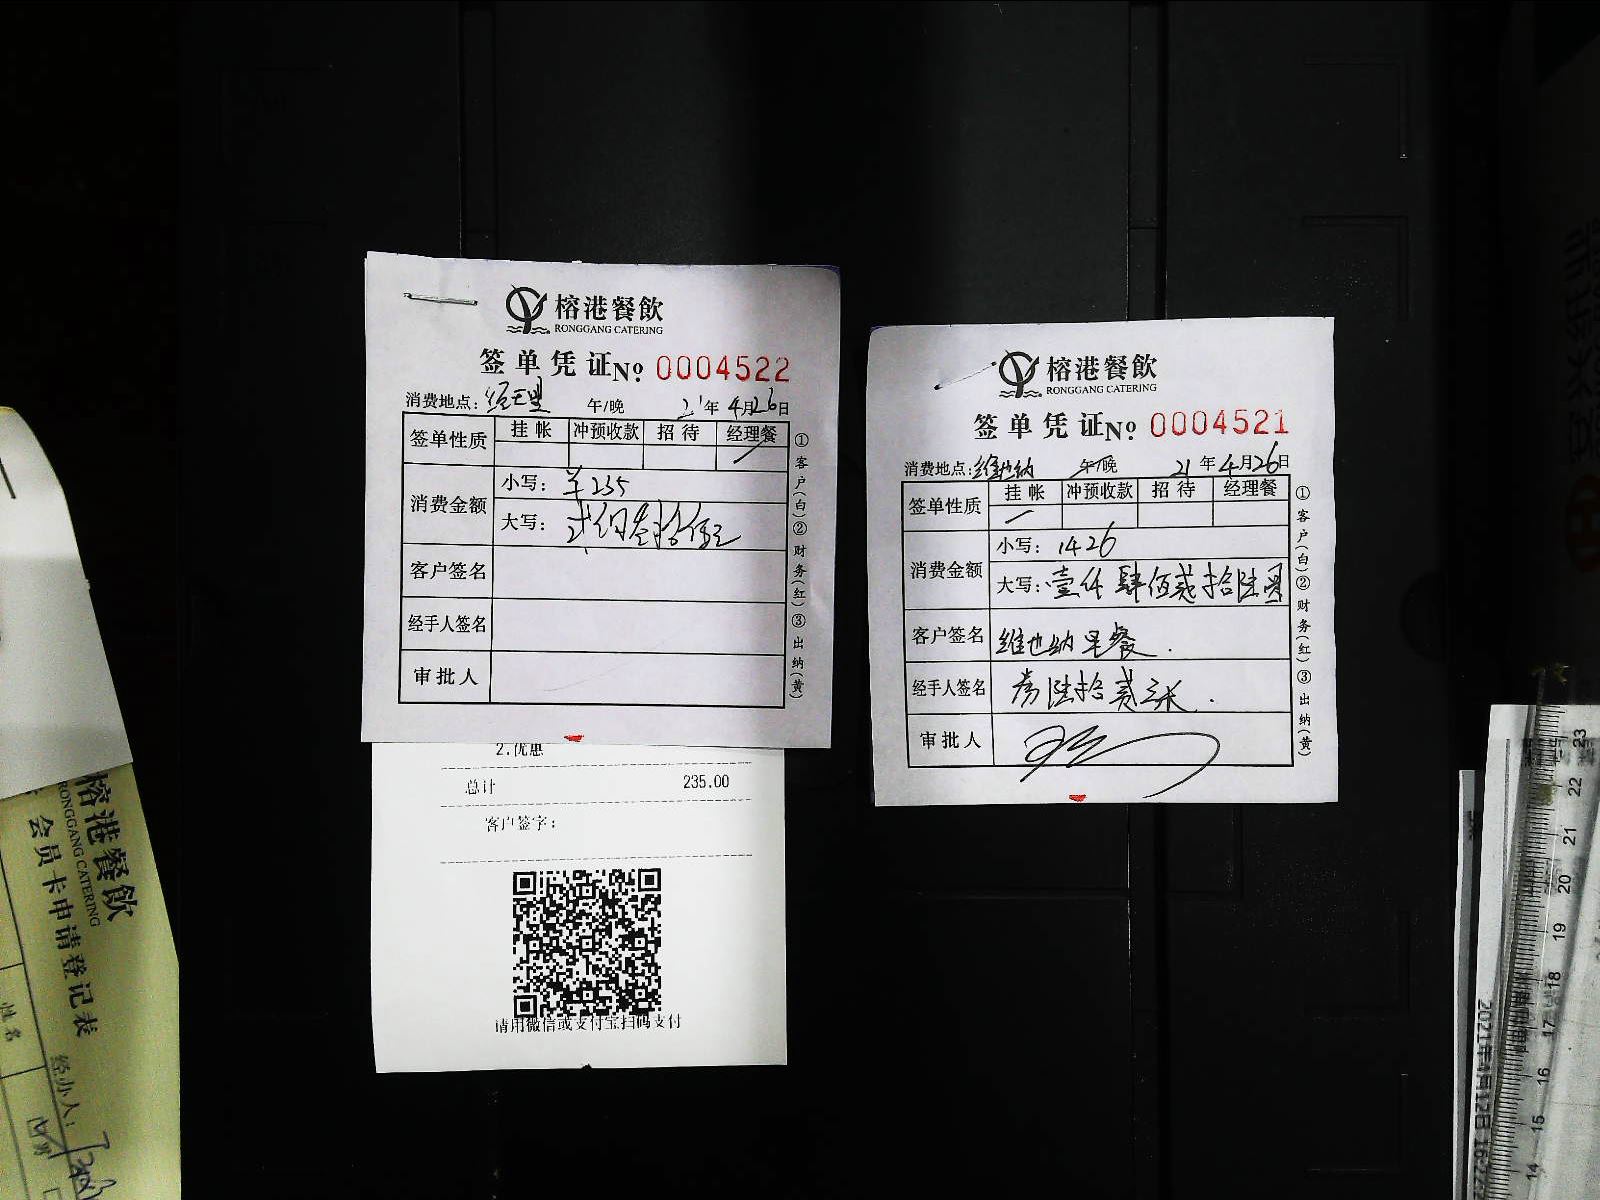 榕港餐飲
RONGGANG CATERING
签单凭证No 0004522
消费地点：经理 午/晚 21年4月26日
签单性质 挂帐 冲预收款 招待 经理餐
消费金额 小写：￥235
大写：贰佰叁拾伍元
客户签名
经手人签名
审批人
①客户(白)②财务(红)③出纳(黄)
2.优惠
总计 235.00
客户签字：
请用微信或支付宝扫码支付
榕港餐飲
RONGGANG CATERING
签单凭证No 0004521
消费地点：维也纳 午/晚 21年4月26日
签单性质 挂帐 冲预收款 招待 经理餐
消费金额 小写：1426
大写：壹仟肆佰贰拾陆圆
客户签名 维也纳早餐.
经手人签名 陆拾贰张.
审批人
①客户(白)②财务(红)③出纳(黄)
榕港餐飲
RONGGANG CATERING
会员卡申请登记表
经办人：
姓名
23
22
21
20
19
18
17
16
15
14